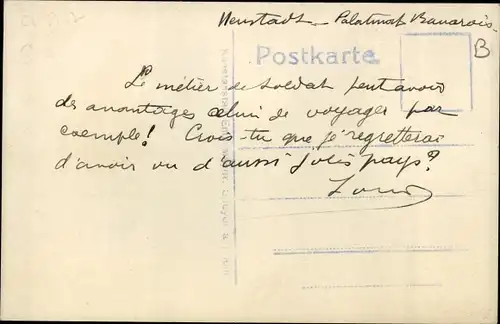 Neustadt - Palatinat Bavarois -
Postkarte
B
Le métier de soldat peut avoir
des avantages celui de voyager par
exemple! Crois-tu que je regretterai
d'avoir vu d'aussi jolis pays?